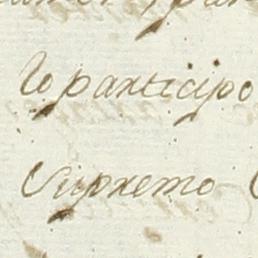 lo participo
Supremo